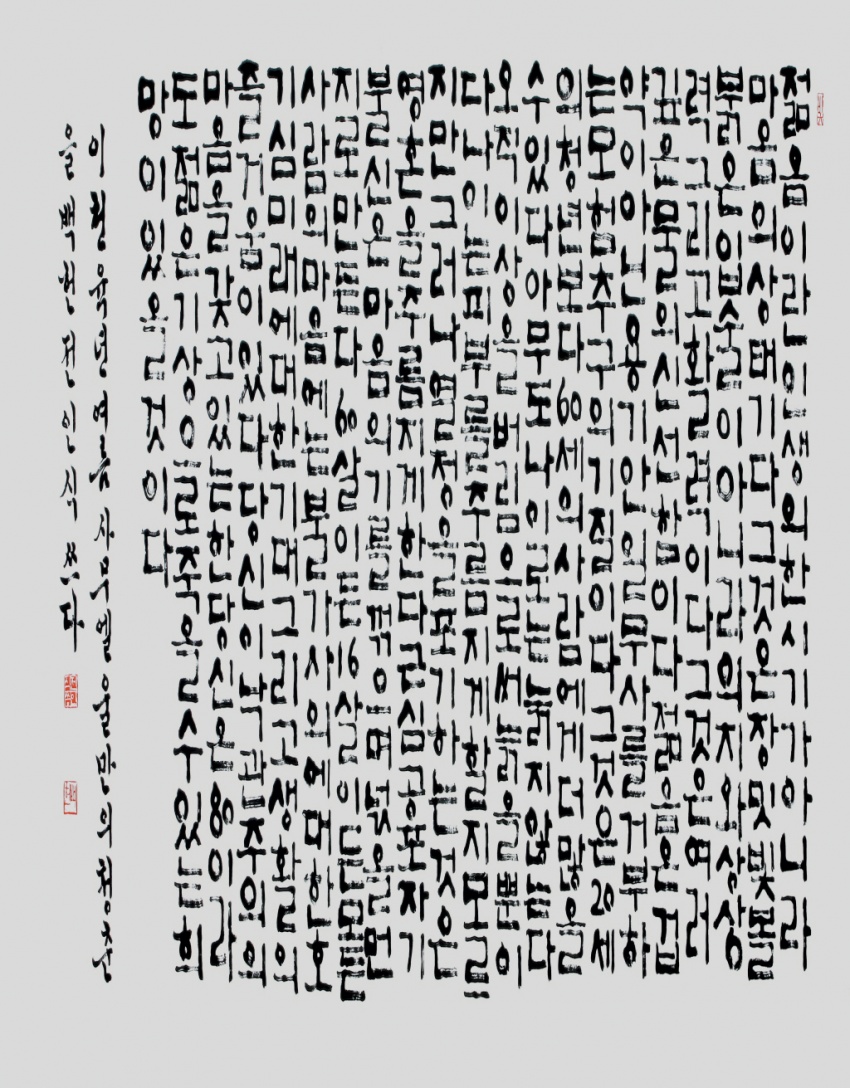 젊음이란인생의한시기가아니라
마음의상태기다그것은장밋빛볼
붉은입술이아니라의지와상상
력그리고활력이다그것은여러
깊은물의신선함이다젊음은겁
약이아닌용기안일무사를거부하
는모험추구의기질이다그것은20세
의청년보다60세의사람에게더많을
수있다아무도나이로는늙지않는다
오직이상을버림으로써늙을뿐이
다나이는피부를주름지게할지모르
지만그러나열정을포기하는것은
영혼을주름지게한다근심공포자기
불신은마음의기를꺾으며넋을먼
지로만든다60살이든16살이든모든
사람의마음에는불가사의에대한호
기심미래에대한기대그리고생활의
즐거움이있다당신이낙관주의의
마음을갖고있는한당신은80이라
도젊은기상으로죽을수있는희
망이있을것이다
이천육년여름사무엘울만의청춘
을백현전인식쓰다